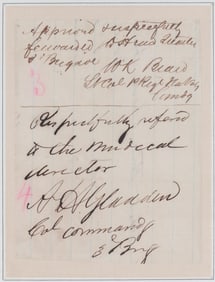 Approved & respectfully
forwarded to Head Quarters
3' Brigade
W R Beard
Lt Col
Comdg
3
Respectfully refered
to the Medecal
director
4
A H Gladden
Col commandg
3 Brig